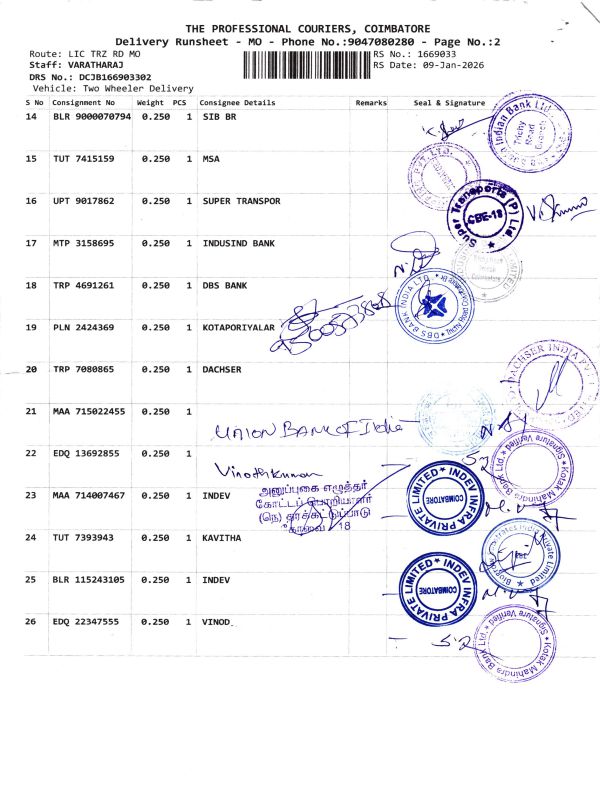 THE PROFESSIONAL COURIERS, COIMBATORE
Delivery Runsheet - MO - Phone No.:9047080280 - Page No.:2
Route: LIC TRZ RD MO
RS No.: 1669033
Staff: VARATHARAJ
RS Date: 09-Jan-2026
DRS No.: DCJB166903302
Vehicle: Two Wheeler Delivery
S No Consignment No Weight PCS Consignee Details Remarks Seal & Signature
14 BLR 9000070794 0.250 1 SIB BR
South Indian Bank Ltd.
Trichy Road Branch
15 TUT 7415159 0.250 1 MSA
PVT.LTD.
16 UPT 9017862 0.250 1 SUPER TRANSPOR
Super Transports (P) Ltd
CBE-18
17 MTP 3158695 0.250 1 INDUSIND BANK
18 TRP 4691261 0.250 1 DBS BANK
DBS BANK INDIA LTD
19 PLN 2424369 0.250 1 KOTAPORIYALAR
20 TRP 7080865 0.250 1 DACHSER
DACHSER INDIA PVT
21 MAA 715022455 0.250 1
UNION BANK OF India
22 EDQ 13692855 0.250 1
Vinothkumar
Kotak Mahindra Bank Ltd. Signature Verified
23 MAA 714007467 0.250 1 INDEV
அனுப்புகை எழுத்தர்
கோட்டப் பொறியாளர்
(நெ) தரக்கட்டுப்பாடு
கோவை 18
INDEV INFRA PRIVATE LIMITED
COIMBATORE
24 TUT 7393943 0.250 1 KAVITHA
25 BLR 115243105 0.250 1 INDEV
INDEV INFRA PRIVATE LIMITED
COIMBATORE
26 EDQ 22347555 0.250 1 VINOD
Kotak Mahindra Bank Ltd. Signature Verified